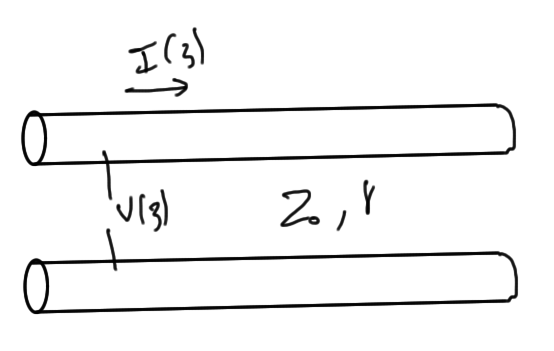 I(z)
V(z)
Z₀, γ